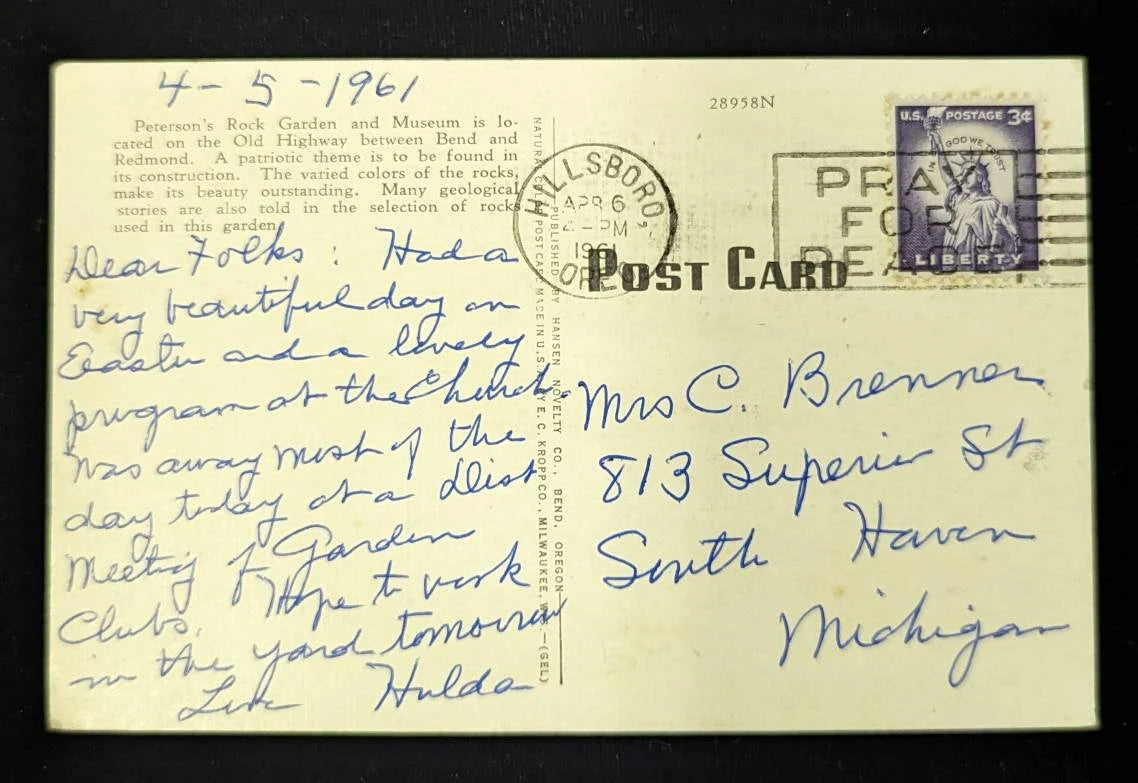 4-5-1961
Peterson's Rock Garden and Museum is lo-
cated on the Old Highway between Bend and
Redmond. A patriotic theme is to be found in
its construction. The varied colors of the rocks,
make its beauty outstanding. Many geological
stories are also told in the selection of rocks
used in this garden.
Dear Folks: Had a
very beautiful day on
Easter and a lovely
program at the Church.
Was away most of the
day today at a Dist
Meeting of Garden
Clubs. Hope to work
in the yard tomorrow
Love Hulda
NATURAL COLOR POST CARD MADE IN U.S.A. BY E. C. KROPP CO., MILWAUKEE, WIS.—(GEL)
PUBLISHED BY HANSEN NOVELTY CO., BEND, OREGON
28958N
HILLSBORO,
APR 6
4-PM
1961
OREG
PRAY
FOR
PEACE
U.S. POSTAGE 3¢
IN GOD WE TRUST
LIBERTY
POST CARD
Mrs C. Brenner
813 Superior St
South Haven
Michigan